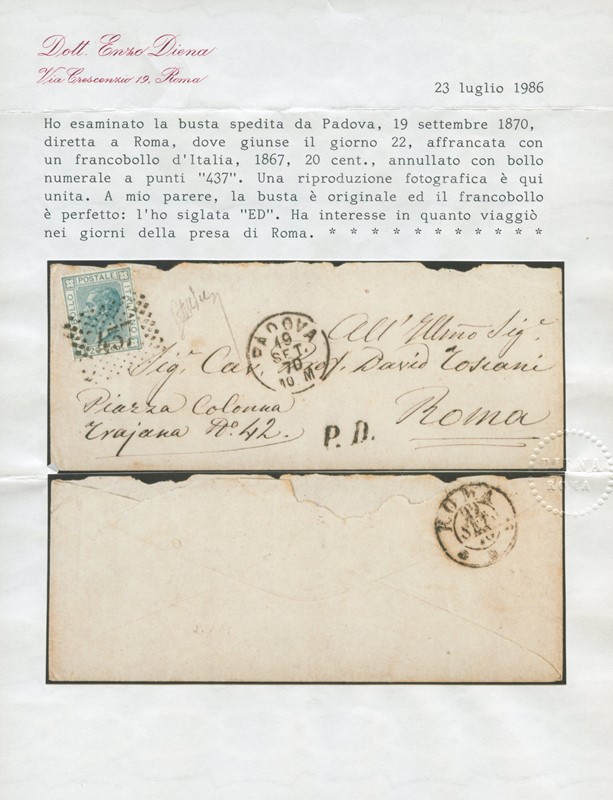 Dott. Enzo Diena
Via Crescenzio 19, Roma
23 luglio 1986
Ho esaminato la busta spedita da Padova, 19 settembre 1870,
diretta a Roma, dove giunse il giorno 22, affrancata con
un francobollo d'Italia, 1867, 20 cent., annullato con bollo
numerale a punti "437". Una riproduzione fotografica è qui
unita. A mio parere, la busta è originale ed il francobollo
è perfetto: l'ho siglata "ED". Ha interesse in quanto viaggiò
nei giorni della presa di Roma. * * * * * * * * * * *
BOLLO POSTALE ITALIANO
437
PADOVA
19
SET.
70
10 M
All' Illmo Sigr.
Sigr. Cav. Prof. David Toscani
Piazza Colonna
Trajana No. 42.
Roma
P. D.
DIENA
ROMA
ROMA
22
SET
70